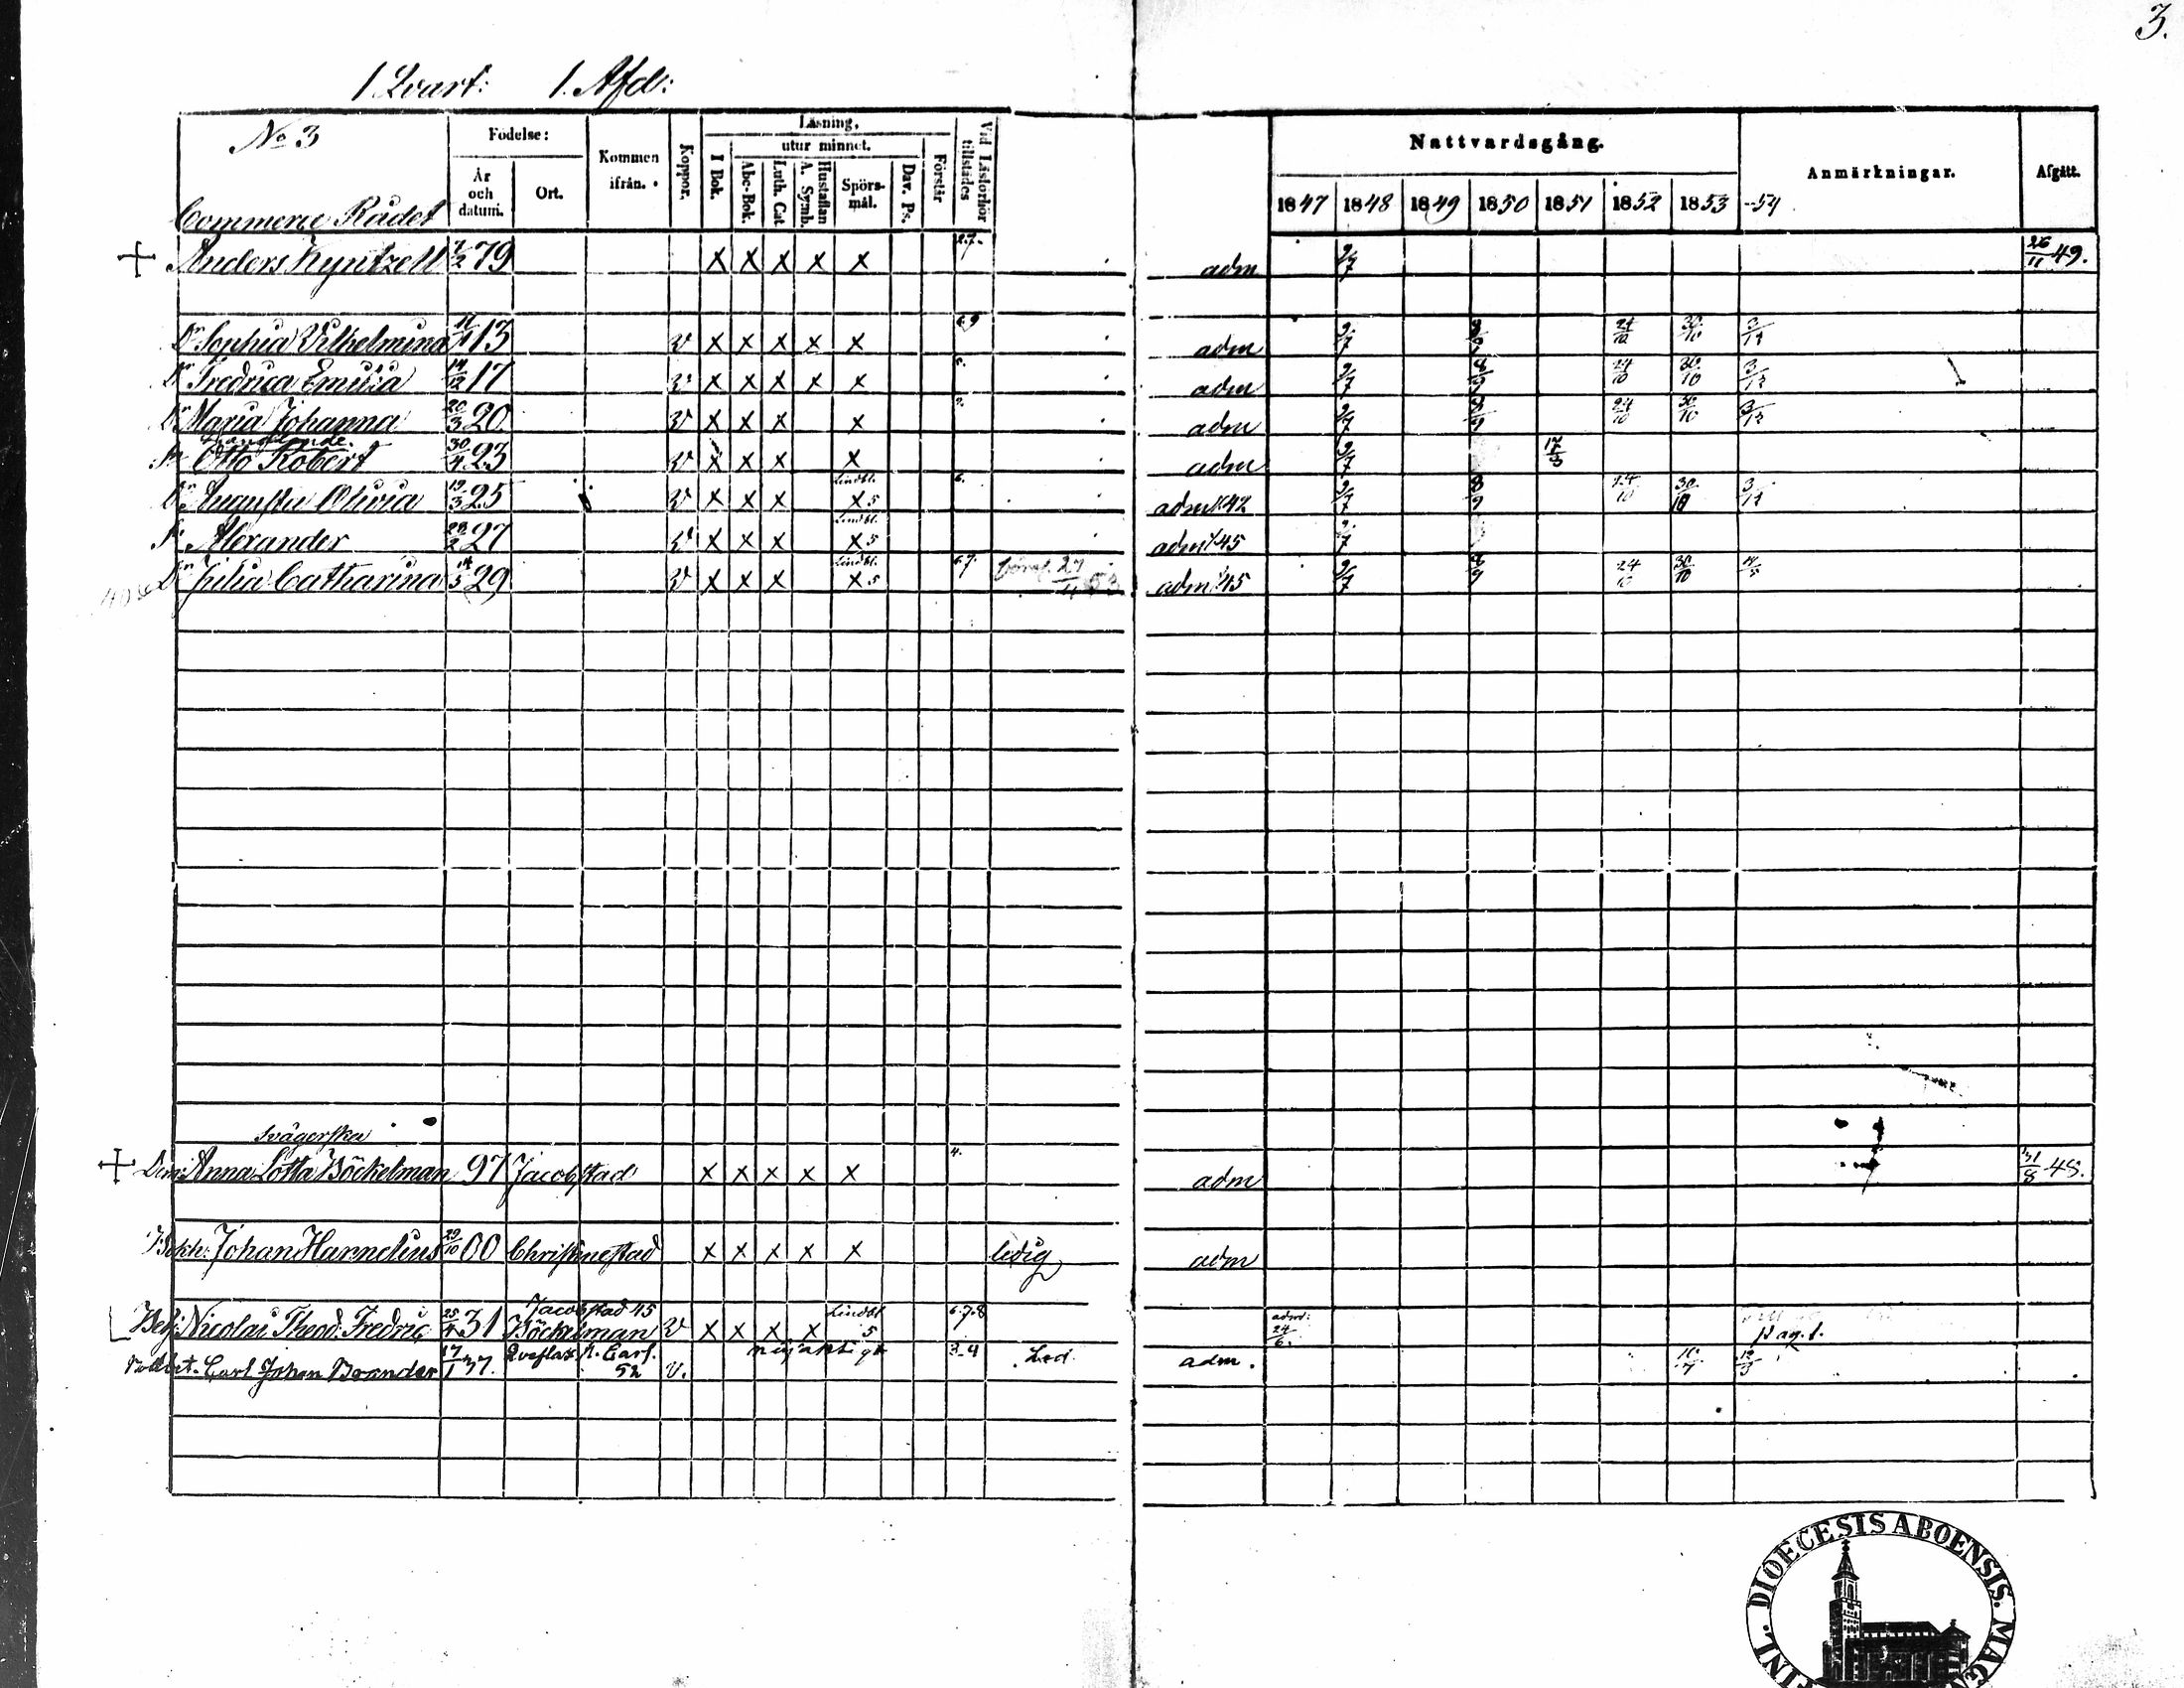 3.
1 Qvart: 1. Afd:
No 3
Commerce Rådet
Födelse:
År och datum.
Ort.
Kommen ifrån.
Koppor.
Läsning,
utur minnet.
I Bok.
Abc-Bok.
Luth. Cat
Hustaflan A. Symb.
Spörs-mål.
Dav. Ps.
Förstår
Vid Läsförhör tillstädes
Nattvardsgång.
1847 1848 1849 1850 1851 1852 1853 -54
Anmärkningar.
Afgått.
+ Anders Kyntzell 7/2 79 X X X X X 2.7. adm 9/7 26/11 49.
Dr Sophia Vilhelmina 13 v X X X X X 6.9 adm 9/7 8/9 24/10 30/10
Dr Fredrica Emilia 14/12 17 v X X X X X adm 9/7 8/9 24/10 30/10
Dr Maria Johanna 20/3 20 v X X X X adm 9/7 8/9 24/10 30/10
Handlande.
Sn Otto Robert 30/4 23 v X X X X adm 9/7 17/3
Dr Augusta Olivia 19/3 25 v X X X Lindbl. X 5 6. adm 42 9/7 8/9 24/10 30/10
Sn Alexander 28/2 27 v X X X Lindbl. X 5 adm 45 9/7
Dr Julia Catharina 14/5 29 v X X X Lindbl. X 5 6.7. 27/11 53 adm 45 9/7 8/9 24/10 30/10
Svägerska
+ Dem: Anna Lotta Böckelman 97 Jacobstad X X X X X 4. adm 31/8 48.
Bokh: Johan Harnelius 29/10 00 Christinestad X X X X X ledig adm
Betj: Nicolai Theod. Fredric 25/4 31 Jacobstad 45 Böckelman v X X X X Lindbl 5 6.7.8 adm: 24/6.
Carl Johan Brander 17/1 37. Qveflax 52 v. 3.4 Led. adm.
FINL. DIOECESIS ABOENSIS. MAG